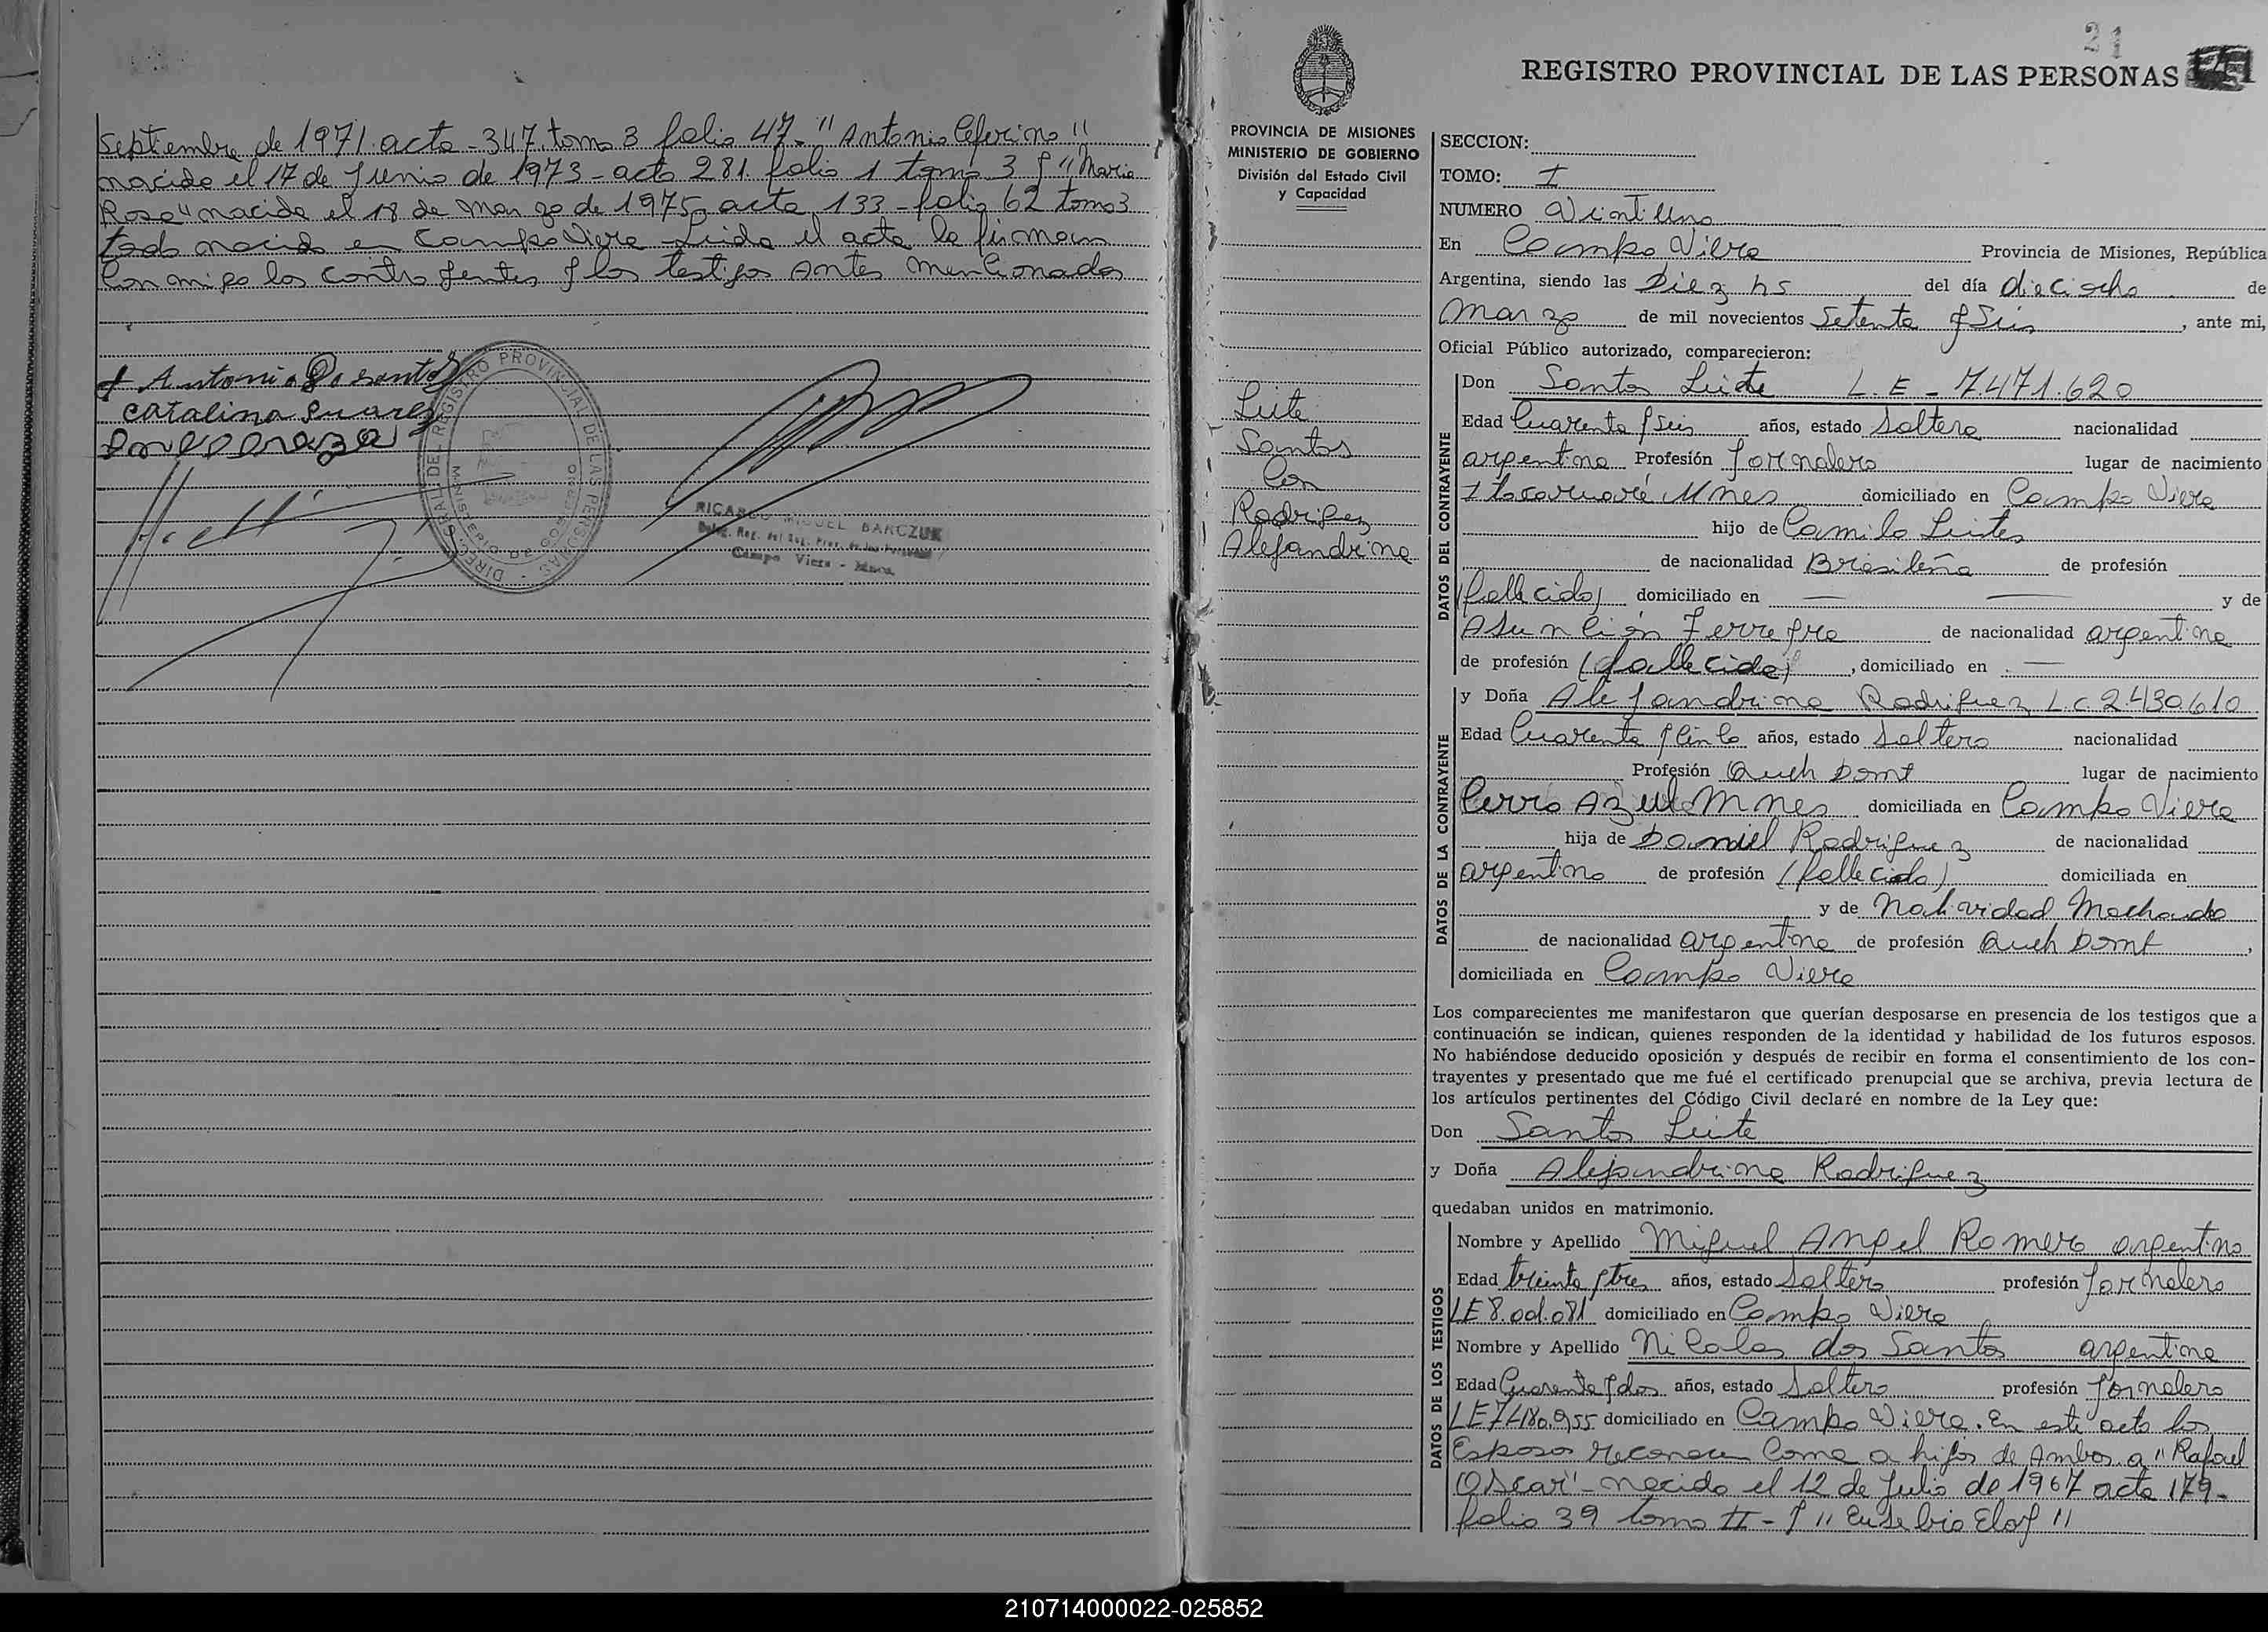 Septiembre de 1971. acta - 347. tomo 3 folio 47 - "Antonio Ceferino"
nacido el 17 de Junio de 1973 - acta 281. folio 1 tomo 3 y "Maria
Rosa" nacida el 18 de Marzo de 1975 acta 133 - folio 62 tomo 3
todo nacido en Campo Viera Leida el acta la firman
Conmigo los contrayentes y los testigos antes mencionados
Antonio Do santos
Catalina Suarez
DIREC. GRAL. DEL REGISTRO PROVINCIAL DE LAS PERSONAS
MINISTERIO DE GOBIERNO
RICARDO MIGUEL BARCZUK
Campo Viera - Mnes.
21
REGISTRO PROVINCIAL DE LAS PERSONAS
PROVINCIA DE MISIONES
MINISTERIO DE GOBIERNO
División del Estado Civil
y Capacidad
Leite
Santos
Con
Rodriguez
Alejandrina
SECCION:
TOMO: I
NUMERO Vintiuno
En Campo Viera Provincia de Misiones, República
Argentina, siendo las Diez hs del día dieciocho de
Marzo de mil novecientos Setenta y Seis, ante mi,
Oficial Público autorizado, comparecieron:
DATOS DEL CONTRAYENTE
Don Santos Leite L.E - 7.471.620
Edad Cuarenta y Seis años, estado Soltero nacionalidad
argentino Profesión Jornalero lugar de nacimiento
Itacaruaré Mnes domiciliado en Campo Viera
hijo de Camilo Leites
de nacionalidad Brasileña de profesión
(fallecido) domiciliado en — — y de
Asunción Ferreyra de nacionalidad argentina
de profesión (fallecida), domiciliado en —
DATOS DE LA CONTRAYENTE
y Doña Alejandrina Rodriguez L.C 2.430.610
Edad Cuarenta y Cinco años, estado Soltera nacionalidad
Profesión Queh Domt lugar de nacimiento
Cerro Azul Mnes domiciliada en Campo Viera
hija de Daniel Rodriguez de nacionalidad
argentino de profesión (fallecido) domiciliada en
y de Natividad Machado
de nacionalidad argentina de profesión Queh Domt,
domiciliada en Campo Viera
Los comparecientes me manifestaron que querían desposarse en presencia de los testigos que a
continuación se indican, quienes responden de la identidad y habilidad de los futuros esposos.
No habiéndose deducido oposición y después de recibir en forma el consentimiento de los con-
trayentes y presentado que me fué el certificado prenupcial que se archiva, previa lectura de
los artículos pertinentes del Código Civil declaré en nombre de la Ley que:
Don Santos Leite
y Doña Alejandrina Rodriguez
quedaban unidos en matrimonio.
DATOS DE LOS TESTIGOS
Nombre y Apellido Miguel Angel Romero argentino
Edad treinta y tres años, estado Soltero profesión Jornalero
LE 8.001.081 domiciliado en Campo Viera
Nombre y Apellido Nicolas dos Santos argentino
Edad Cuarenta y dos años, estado Soltero profesión Jornalero
LE 7.480.955 domiciliado en Campo Viera. En este acto los
Esposos reconocen Como a hijos de Ambos a "Rafael
Oscar" - nacido el 12 de Julio de 1967 acta 179 -
folio 39 tomo II - y "Eusebio Eloy"
210714000022-025852